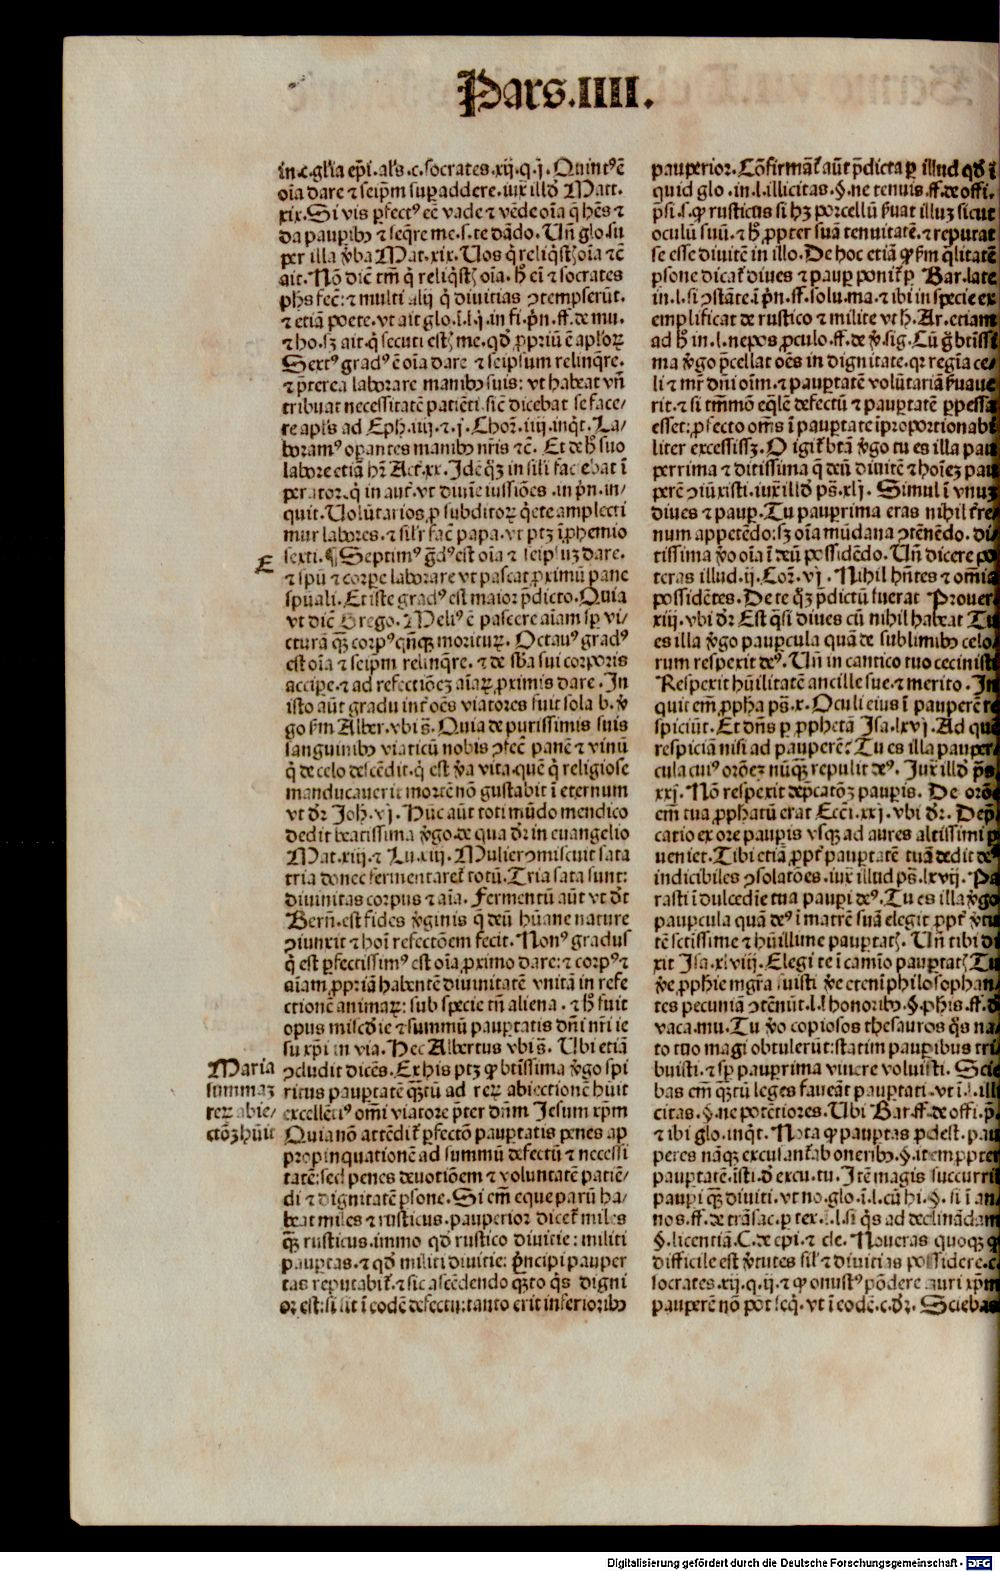 Pars.IIII.
in.c.gl'ia ep̄i.al's.c.socrates.xij.q.j.Quintꝰ ē
oīa dare ⁊ seip̄m suꝑaddere.iux̄ illđ Matt.
xix.Si vis ꝑfectꝰ eē vade ⁊ vēde oīa q̄ hēs ⁊
da pauꝑibꝰ ⁊ seq̄re me.s.te dādo. Uñ glo.su
per illa v̄ba Mat.xix. Uos q̇ reliq̇stꝭ oīa ⁊ē
ait. Nō dic̄ tm̄ q̇ reliq̇stꝭ oīa. h̄ eī ⁊ socrates
ph̄s fec̄: ⁊ multi alij q̇ diuitias ꝯtempserūt.
⁊ etiā poete.vt ait glo.i.l.j.in fi.p̄n.ff.de mu.
⁊ ho.sꝫ ait.q̇ secuti estꝭ me.qđ ꝓpriū ē apl'oꝝ
Sextꝰ gradꝰ ē oīa dare ⁊ seipsum relinq̄re.
⁊ p̄terea laborare manibꝰ suis: vt habeat vñ
tribuat necessitatē patiēti.sic̄ dicebat se face/
re apl's ad Eph.iiij.⁊.j.Choꝝ.iiij.inq̇t. La/
boramꝰ oꝑantes manibꝰ nr̄is ⁊ē. Et de h̄ suo
labore etiā hr̄ Act̄.xx. Idē q̄ꝫ in sil'i faciebat ī
perator.q̇ in aut̄.vt diuīe iussiōes.in p̄n.in/
quit.Uolūtarios ꝓ subditoꝝ q̇ete amplecti
mur labores.⁊ sil'r fac̄ papa.vt ptꝫ ī ꝓhemio
E
sexti.¶ Septimꝰ g̊dꝰ est oīa ⁊ seipsuꝫ dare.
⁊ spū ⁊ corꝑe laborare vt pascat ꝓximū pane
spūali. Et iste gradꝰ est maior p̄dicto. Quia
vt dic̄ Grego. Meliꝰ ē pascere aīam sꝑ vi/
cturā q̄ꝫ corpꝰ qn̄q̨ morituꝝ. Octauꝰ gradꝰ
est oīa ⁊ seip̄m relinq̄re.⁊ de sb̄a sui corporis
accipe.⁊ ad refectiōeꝫ aīaꝝ ꝓximis dare. In
isto aūt gradu int̄ oēs viatores fuit sola b. v̄
go fm̄ Alber.vbi s̄. Quia de purissimis suis
sanguinibꝰ viaticū nobis ꝯfec̄ panē ⁊ vinū
q̇ de celo descēdit.q̇ est v̄a vita.quē q̇ religiose
manducauerit mortē nō gustabit ī eternum
vt dr̄ Joh̄.vj. Hūc aūt toti mūdo mendico
dedit beatissima v̄go.de qua dr̄ in euangelio
Mat.xiij.⁊ Lu.xiij. Mulier ꝯmiscuit sata
tria donec fermentaret̄ totū. Tria sata sunt:
diuinitas corpus ⁊ aīa. Fermentū aūt vt dt̄
Bern̄.est fides v̄ginis q̄ deū hūane nature
ꝯiunxit ⁊ hoī refectōem fecit. Nonꝰ gradus
q̇ est ꝑfectissimꝰ est oīa ꝓximo dare: ⁊ corpꝰ ⁊
aīam ꝓpriā habentē diuinitatē vnitā in refe
ctionē animaꝝ: sub specie tn̄ aliena.⁊ h̄ fuit
opus mīscd'ie ⁊ summū pauꝑtatis dn̄i nr̄i ie
su xp̄i in via. Hec Albertus vbi s̄. Ubi etiā
Maria
summaꝫ
reꝝ abie/
ctōꝫ hūit
ꝯcludit dicēs. Ex his ptꝫ ꝙ btīssima v̄go spi
ritus pauꝑtatē q̄ꝫtū ad reꝝ abiectionē hūit
excellētiꝰ om̄i viatore p̄ter dn̄m Jesum xp̄m
Quia nō attēdit̄ ꝑfectō pauꝑtatis penes ap
propinquationē ad summū defectū ⁊ necessi
tatē: sed penes deuotiōem ⁊ voluntatē patiē/
di ⁊ dignitatē ꝑsone. Si em̄ eque parū ha/
beat miles ⁊ rusticus.pauperior dicet̄ miles
q̄ꝫ rusticus.immo qđ rustico diuitie: militi
pauꝑtas.⁊ qđ militi diuitie: pͥncipi pauper
tas reputabit̄.⁊ sic ascēdendo q̄ꝫto q̇s digni
or est: si sit ī eodē defectu: tanto erit inferioribꝰ
pauperior. Cōfirmāt̄ aūt p̄dicta ꝑ illud qđ ī
quid glo.in.l.illicitas.§.ne tenuis.ff.de offi.
p̄si.s.ꝙ rusticus si hꝫ porcellū f̄uat illuꝫ sicut
oculū suū.⁊ h̄ ꝓpter suā tenuitatē.⁊ reputat
se esse diuitē in illo. De hoc etiā ꝙ fm̄ q̄litatē
ꝑsone dicat̄ diues ⁊ pauꝑ ponit̄ ꝑ Bar.late
in.l.si ꝯstāte.ī p̄n.ff.solu.ma.⁊ ibi in specie ex
emplificat de rustico ⁊ milite vt h̄. Ar.etiam
ad h̄ in.l.nepos ꝓculo.ff.de v̄.sig. Cū g̊ btīssi
ma v̄go p̄cellat oēs in dignitate.qꝛ regīa ce/
li ⁊ mr̄ dn̄i oīm.⁊ pauꝑtatē volūtariā f̄uaue
rit.⁊ si tm̄mō eq̄lē defectū ⁊ pauꝑtatē ꝑpessa
esset: ꝓfecto om̄s ī pauꝑtate īproportionabi
liter excessissꝫ. O igit̄ btā v̄go tu es illa pau
perrima ⁊ ditissima q̄ deū diuitē ⁊ hoīeꝫ pau
perē ꝯiūxisti.iux̄ illđ ps̄.xlj. Simul ī vnuꝫ
diues ⁊ pauꝑ. Tu pauꝑrima eras nihil t̄re/
num appetēdo: sꝫ oīa mūdana ꝯtēnēdo. di/
tissima v̄o oīa ī deū possidēdo. Uñ dicere po
teras illud.ij.Coꝝ.vj. Nihil hn̄tes ⁊ omīa
possidētes. De te q̄ꝫ p̄dictū fuerat Prouer
xiij.vbi dr̄ Est q̄si diues cū nihil habeat Tu
es illa v̄go pauꝑcula quā de sublimibꝰ celo/
rum respexit deꝰ. Uñ in cantico tuo cecinisti
Respexit hūilitatē ancille sue.⁊ merito. In
quit em̄ ꝓpha ps̄.x. Oculi eius ī pauperē re
spiciūt. Et dn̄s ꝑ ꝓphetā Isa.lxvj. Ad quē
respiciā nisi ad pauperē? Tu es illa pauper/
cula cuiꝰ orōeꝫ nūq̄ꝫ repulit deꝰ. Jux̄ illđ ps̄
xxj. Nō respexit dep̄catōꝫ pauꝑis. De orōe
em̄ tua ꝓphatū erat Ecci.xxj.vbi dr̄. Dep̄
catio ex ore pauꝑis vsq̨ ad aures altissimi ꝑ
ueniet. Tibi etiā ꝓpt̄ pauꝑtatē tuā dedit deꝰ
indicibiles ꝯsolatōes.iux̄ illud ps̄.lxvij. Pa
rasti ī dulcedīe tua pauꝑi deꝰ. Tu es illa v̄go
pauꝑcula quā deꝰ ī matrē suā elegit ꝓpt̄ v̄tu
tē sctīssime ⁊ hūillime pauꝑtatꝭ. Uñ tibi di
xit Isa.xlviij. Elegi te ī camīo pauꝑtatꝭ Tu
v̄e ꝓphie mgr̄a fuisti v̄e etenī philosophan/
tes pecuniā ꝯtēnūt.l.l honoribꝰ.§.phis.ff.d̄
vaca.mu. Tu v̄o copiosos thesauros q̇s na/
to tuo magi obtulerūt: statim pauꝑibus tri
buisti.⁊ sꝑ pauꝑrima viuere voluisti. Scie
bas em̄ q̄ꝫtū leges faueāt pauꝑtati.vt ī.l.illi
citas.§.ne potētiores. Ubi Bar.ff.de offi.p̄.
⁊ ibi glo.inq̇t. Nota ꝙ pauꝑtas ꝓdest.pau
peres nāq̨ excusant̄ ab oneribꝰ.§.item ꝓpter
pauꝑtatē.īsti.đ excu.tu. Itē magis succurri
pauꝑi q̄ꝫ diuiti.vt no.glo.ī.l.cū hi.§.si ī an
nos.ff.de trāsac.ꝑ tex.ī.l.si q̇s ad declināndam
§.licentiā.C.de ep̄i.⁊ cle. Noueras quoq̨ ꝙ
difficile est v̄tutes sil' ⁊ diuitias possidere.c.
socrates.xij.q.ij.⁊ ꝙ onustꝰ pōdere auri xp̄m
pauꝑerē nō pot seq̇.vt ī eodē.c.dr̄. Sciebas
Digitalisierung gefördert durch die Deutsche Forschungsgemeinschaft - DFG